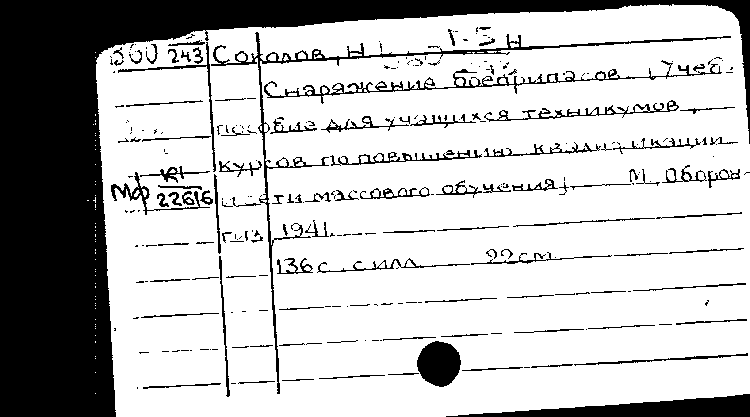 Г-5
243 Соколов, Н
Снаряжение боеприпасов. (Учеб.
пособие для учащихся техникумов,
курсов по повышению квалификации
и сети массового обучения). М, Оборон-
Мф К1
22616
гиз, 1941.
136 с. с илл. 22 см.